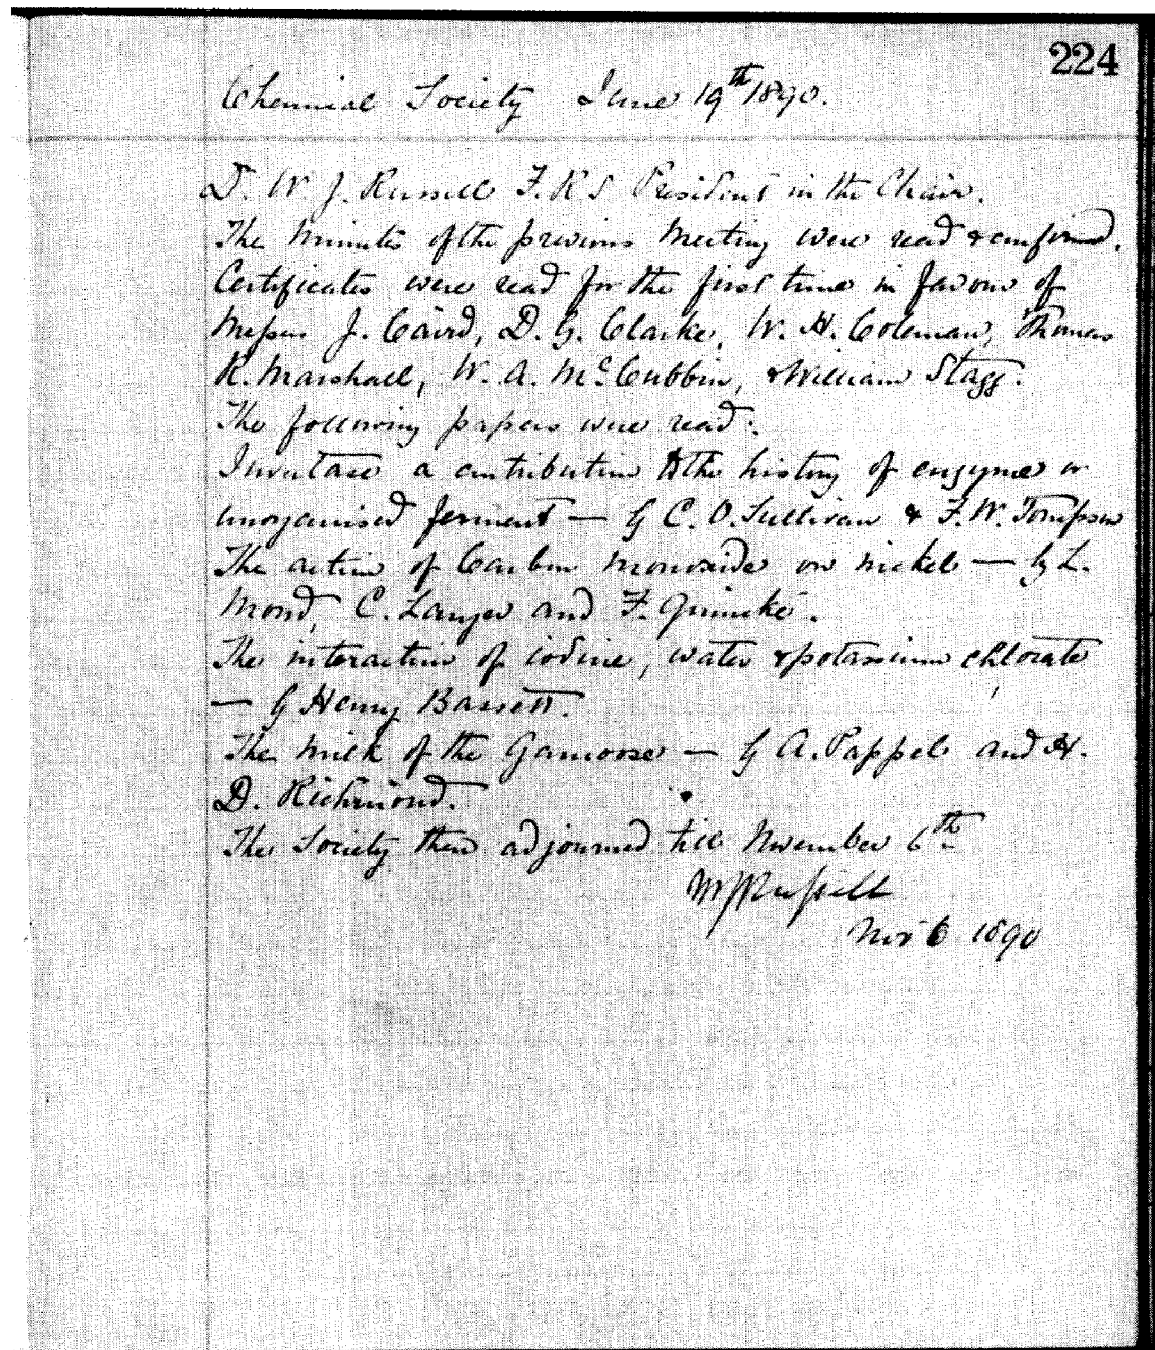 224
Chemical Society June 19th 1890.
Dr. W. J. Russell F.R.S President in the Chair.
The Minutes of the previous Meeting were read & confirmed.
Certificates were read for the first time in favour of
Messrs J. Caird, D. G. Clarke, W. H. Coleman, Thomas
R. Marshall, W. A. McCubbin, & William Stagg.
The following papers were read:
Invertase a contribution to the history of enzyme or
unorganised ferment — By C. O. Sullivan & F. W. Tompson
The action of Carbon monoxide on nickel — by L.
Mond, C. Langer and F. Quincke.
The interaction of iodine, water & potassium chlorate
— By Henry Bassett.
The Milk of the Gamoose — By A. Pappel and H.
D. Richmond.
The Society then adjourned till November 6th
WJRussell
Nov 6 1890